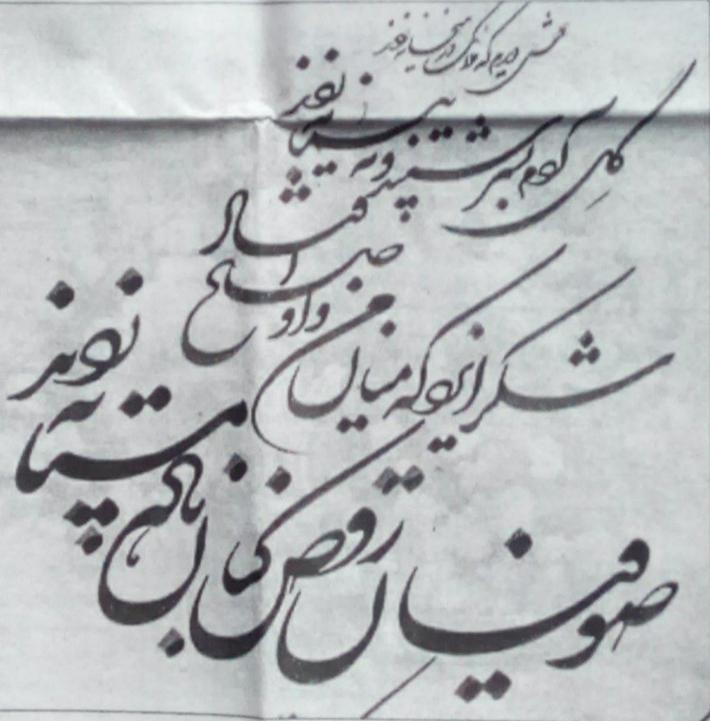 دوش دیدم که ملائک در میخانه زدند
گل آدم بسرشتند و به پیمانه زدند
شکر ایزد که میان من و او صلح افتاد
صوفیان رقص کنان مستانه زدند